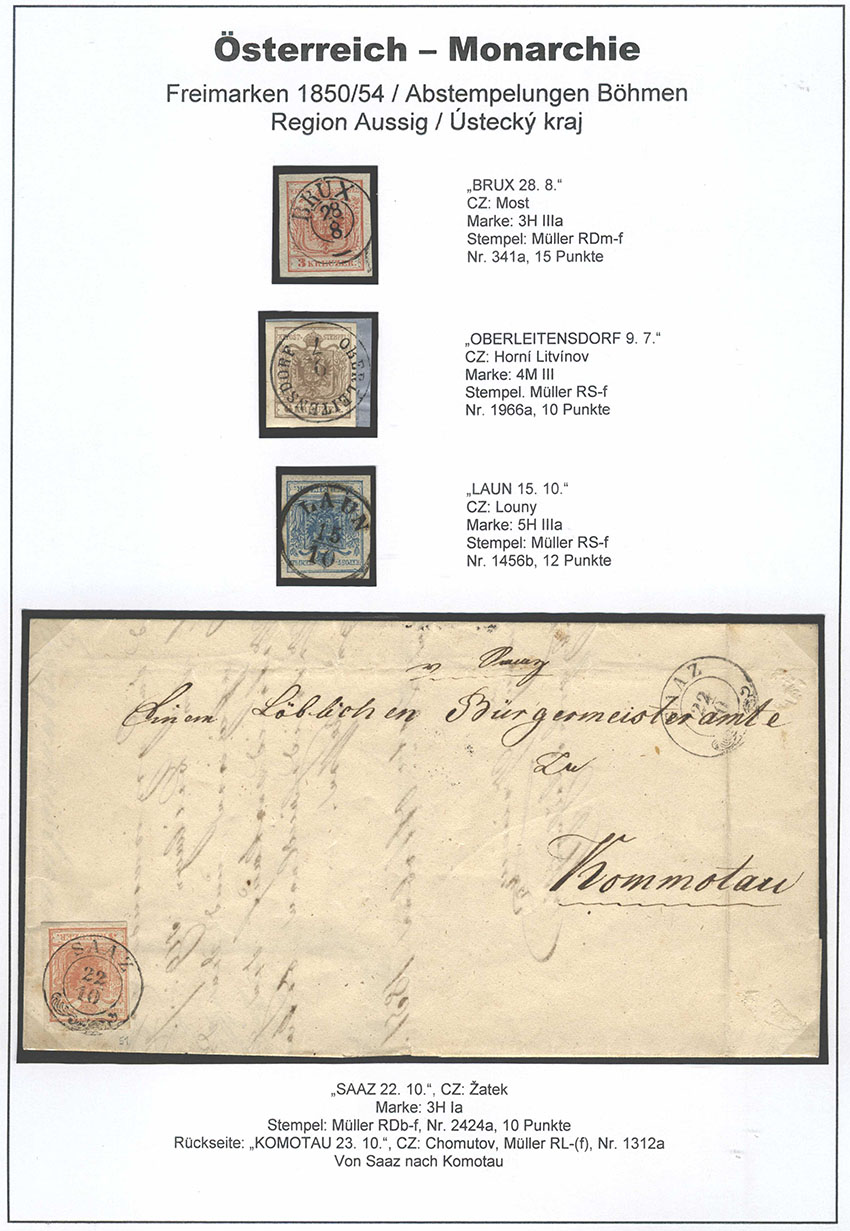 Österreich – Monarchie
Freimarken 1850/54 / Abstempelungen Böhmen
Region Aussig / Ústecký kraj
BRUX
28
8
3 KREUZER
„BRUX 28. 8.“
CZ: Most
Marke: 3H IIIa
Stempel: Müller RDm-f
Nr. 341a, 15 Punkte
OBERLEITENSDORF
„OBERLEITENSDORF 9. 7.“
CZ: Horní Litvínov
Marke: 4M III
Stempel. Müller RS-f
Nr. 1966a, 10 Punkte
LAUN
15
10
„LAUN 15. 10.“
CZ: Louny
Marke: 5H IIIa
Stempel: Müller RS-f
Nr. 1456b, 12 Punkte
v Saaz
SAAZ
22
Einem Löblichen Bürgermeisteramte
Zu
Kommotau
SAAZ
22
10
„SAAZ 22. 10.“, CZ: Žatek
Marke: 3H Ia
Stempel: Müller RDb-f, Nr. 2424a, 10 Punkte
Rückseite: „KOMOTAU 23. 10.“, CZ: Chomutov, Müller RL-(f), Nr. 1312a
Von Saaz nach Komotau